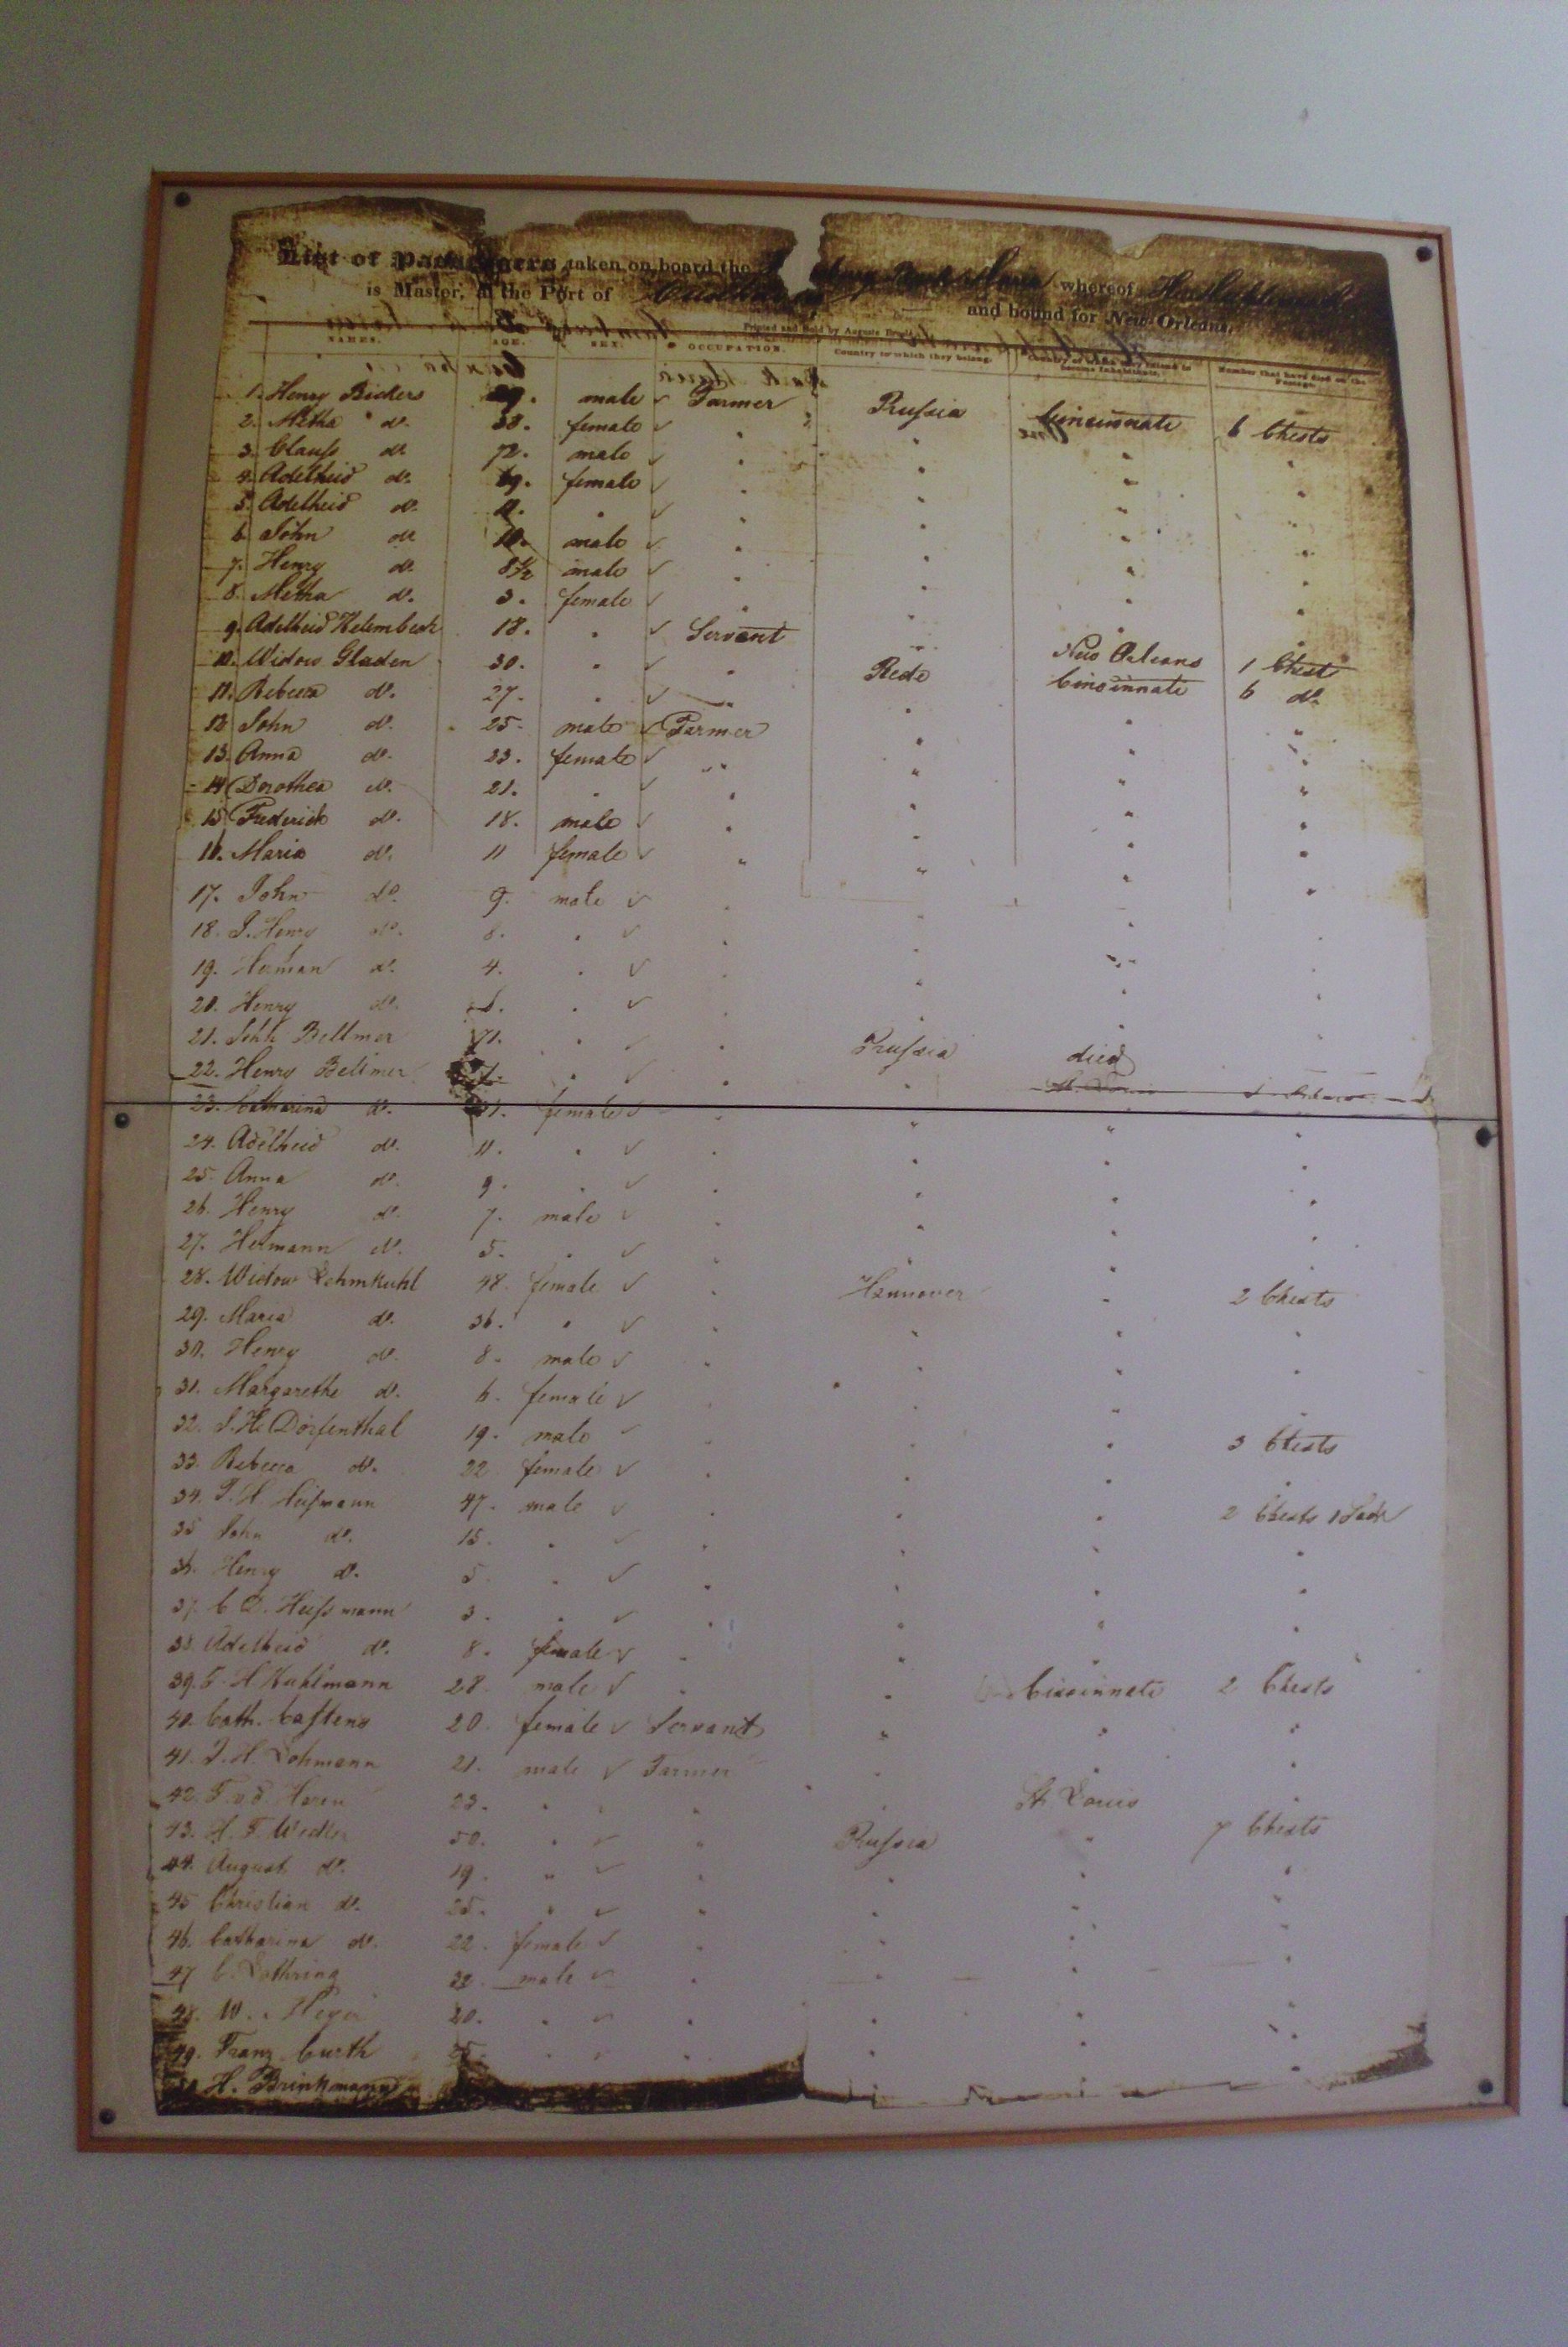 List of passengers taken on board the whereof
is Master, at the Port of and bound for New-Orleans.
NAMES. AGE. SEX. OCCUPATION. Country to which they belong.
1. Henry Bickers 39. male ✓ Farmer Prussia Cincinnate 6 Chests
2. Metha do. 38. female ✓ "
3. Clauss do. 72. male ✓ " " " "
4. Adelheid do. female ✓ " " " "
5. Adelheid do. " ✓ " " " "
6. John do. 10. male ✓ " " " "
7. Henry do. 8 1/2 male ✓ " " " "
8. Metha do. 3. female ✓ " " " "
9. Adelheid Helembeck 18. " ✓ Servant " New Orleans 1 Chest
10. Widow Gladen 30. " ✓ " Rede Cincinnate 6 do.
11. Rebecca do. 27. " ✓ " " " "
12 John do. 25. male ✓ Farmer " " "
13. Anna do. 23. female ✓ " " " "
14 Dorothea do. 21. " ✓ " " " "
15 Frederick do. 18. male ✓ " " " "
16. Maria do. 11 female ✓ " " " "
17. John do. 9. male ✓ " " " "
18. J. Henry do. 8. " ✓ " " " "
19. Herman do. 4. " ✓ " " " "
20. Henry do. 6. " ✓ " " " "
21. Joh. Bellmer 71. " ✓ " Prussia died
22. Henry Bellmer " ✓ " "
23. Catharina do. female ✓ " " " "
24. Adelheid do. 11. " ✓ " " " "
25. Anna do. 9. " ✓ " " " "
26. Henry do. 7. male ✓ " " " "
27. Hermann do. 5. " ✓ " " " "
28. Widow Lehmkuhl 48. female ✓ " Hannover " 2 Chests
29. Maria do. 36. " ✓ " " " "
30. Henry do. 8. male ✓ " " " "
31. Margarethe do. 6. female ✓ " " " "
32. J. H. Dorfenthal 19. male ✓ " " " 3 Chests
33. Rebecca do. 22 female ✓ " " " "
34. J. H. Heissmann 47. male ✓ " " " 2 Chests 1 Sack
35 John do. 15. " ✓ " " " "
36. Henry do. 5 " ✓ " " " "
37. C D. Hussmann 3. " ✓ " " " "
38. Adelheid do. 8. female ✓ " " " "
39. H. Kuhlmann 28. male ✓ " " Cincinnate 2 Chests
40. Cath. Castens 20. female ✓ Servant " " "
41. J. H. Lohmann 21. male ✓ Farmer " " "
42. F. v. d. Haren 23. " " " " St. Louis
43. H. F. 50. " ✓ " Prussia " 7 Chests
44. August do. 19. " ✓ " " " "
45 Christian do. 25. " ✓ " " " "
46. Catharina do. 22. female ✓ " " " "
47 C. Lothring 32. male ✓ " " " "
48. W. Meyer 20. " ✓ " " " "
49. Franz Curth 25. " ✓ " " " "
50 H. Brinkmann